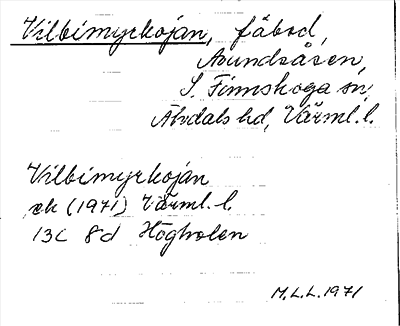 Vilbimyrkojan, fäbod,
Aundsåsen,
S. Finnskoga sn,
Älvdals hd, Värml. l.
Vilbimyrkojan
ek (1971) Värml. l.
13C 8d Högholen
M.L.L. 1971